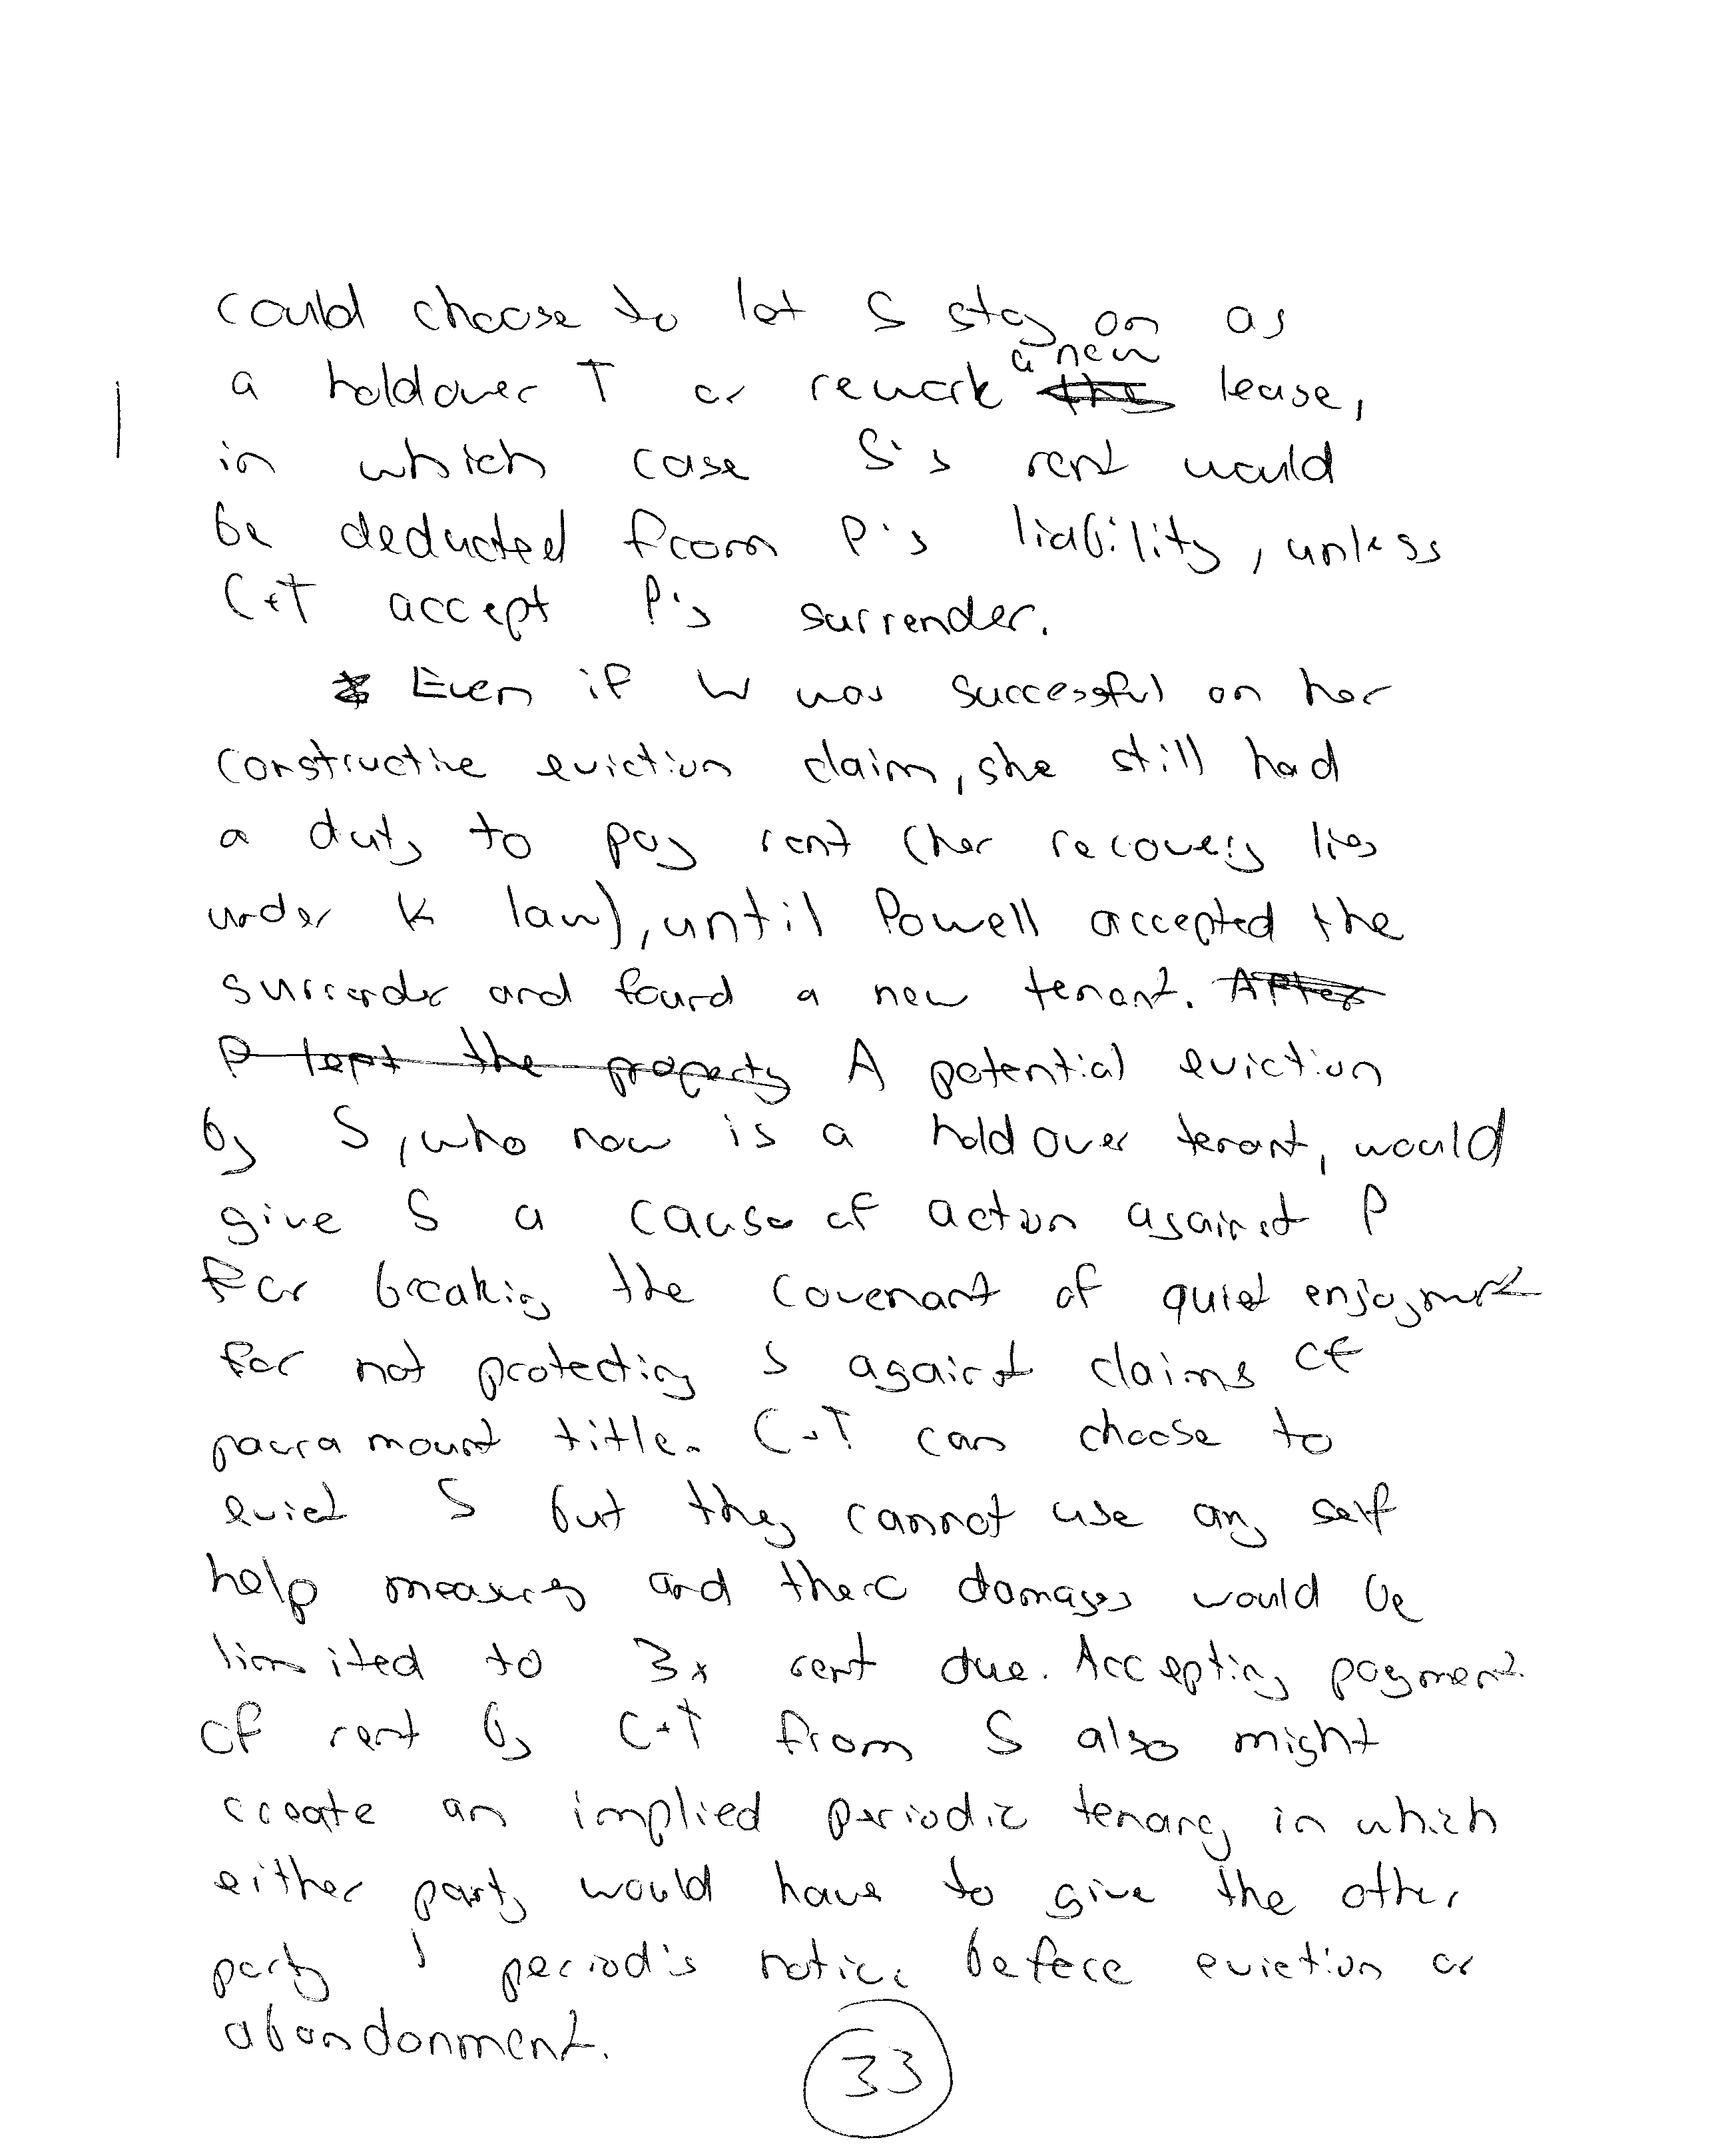 could choose to let S stay on as
a new
a holdover T or rework the lease,
in which case S's rent would
be deducted from P's liability, unless
C+T accept P's surrender.
Even if W was successful on her
constructive eviction claim, she still had
a duty to pay rent (her recovery lies
under K law), until Powell accepted the
surrender and found a new tenant. After
P left the property A potential eviction
by S, who now is a holdover tenant, would
give S a cause of action against P
for breaking the covenant of quiet enjoyment
for not protecting S against claims of
paura mount title. C+T can choose to
evict S but they cannot use any self
help measures and there damages would be
limited to 3x rent due. Accepting payment
of rent by C+T from S also might
create an implied periodic tenancy in which
either party would have to give the other
party 1 period's notice before eviction or
abandonment.
33